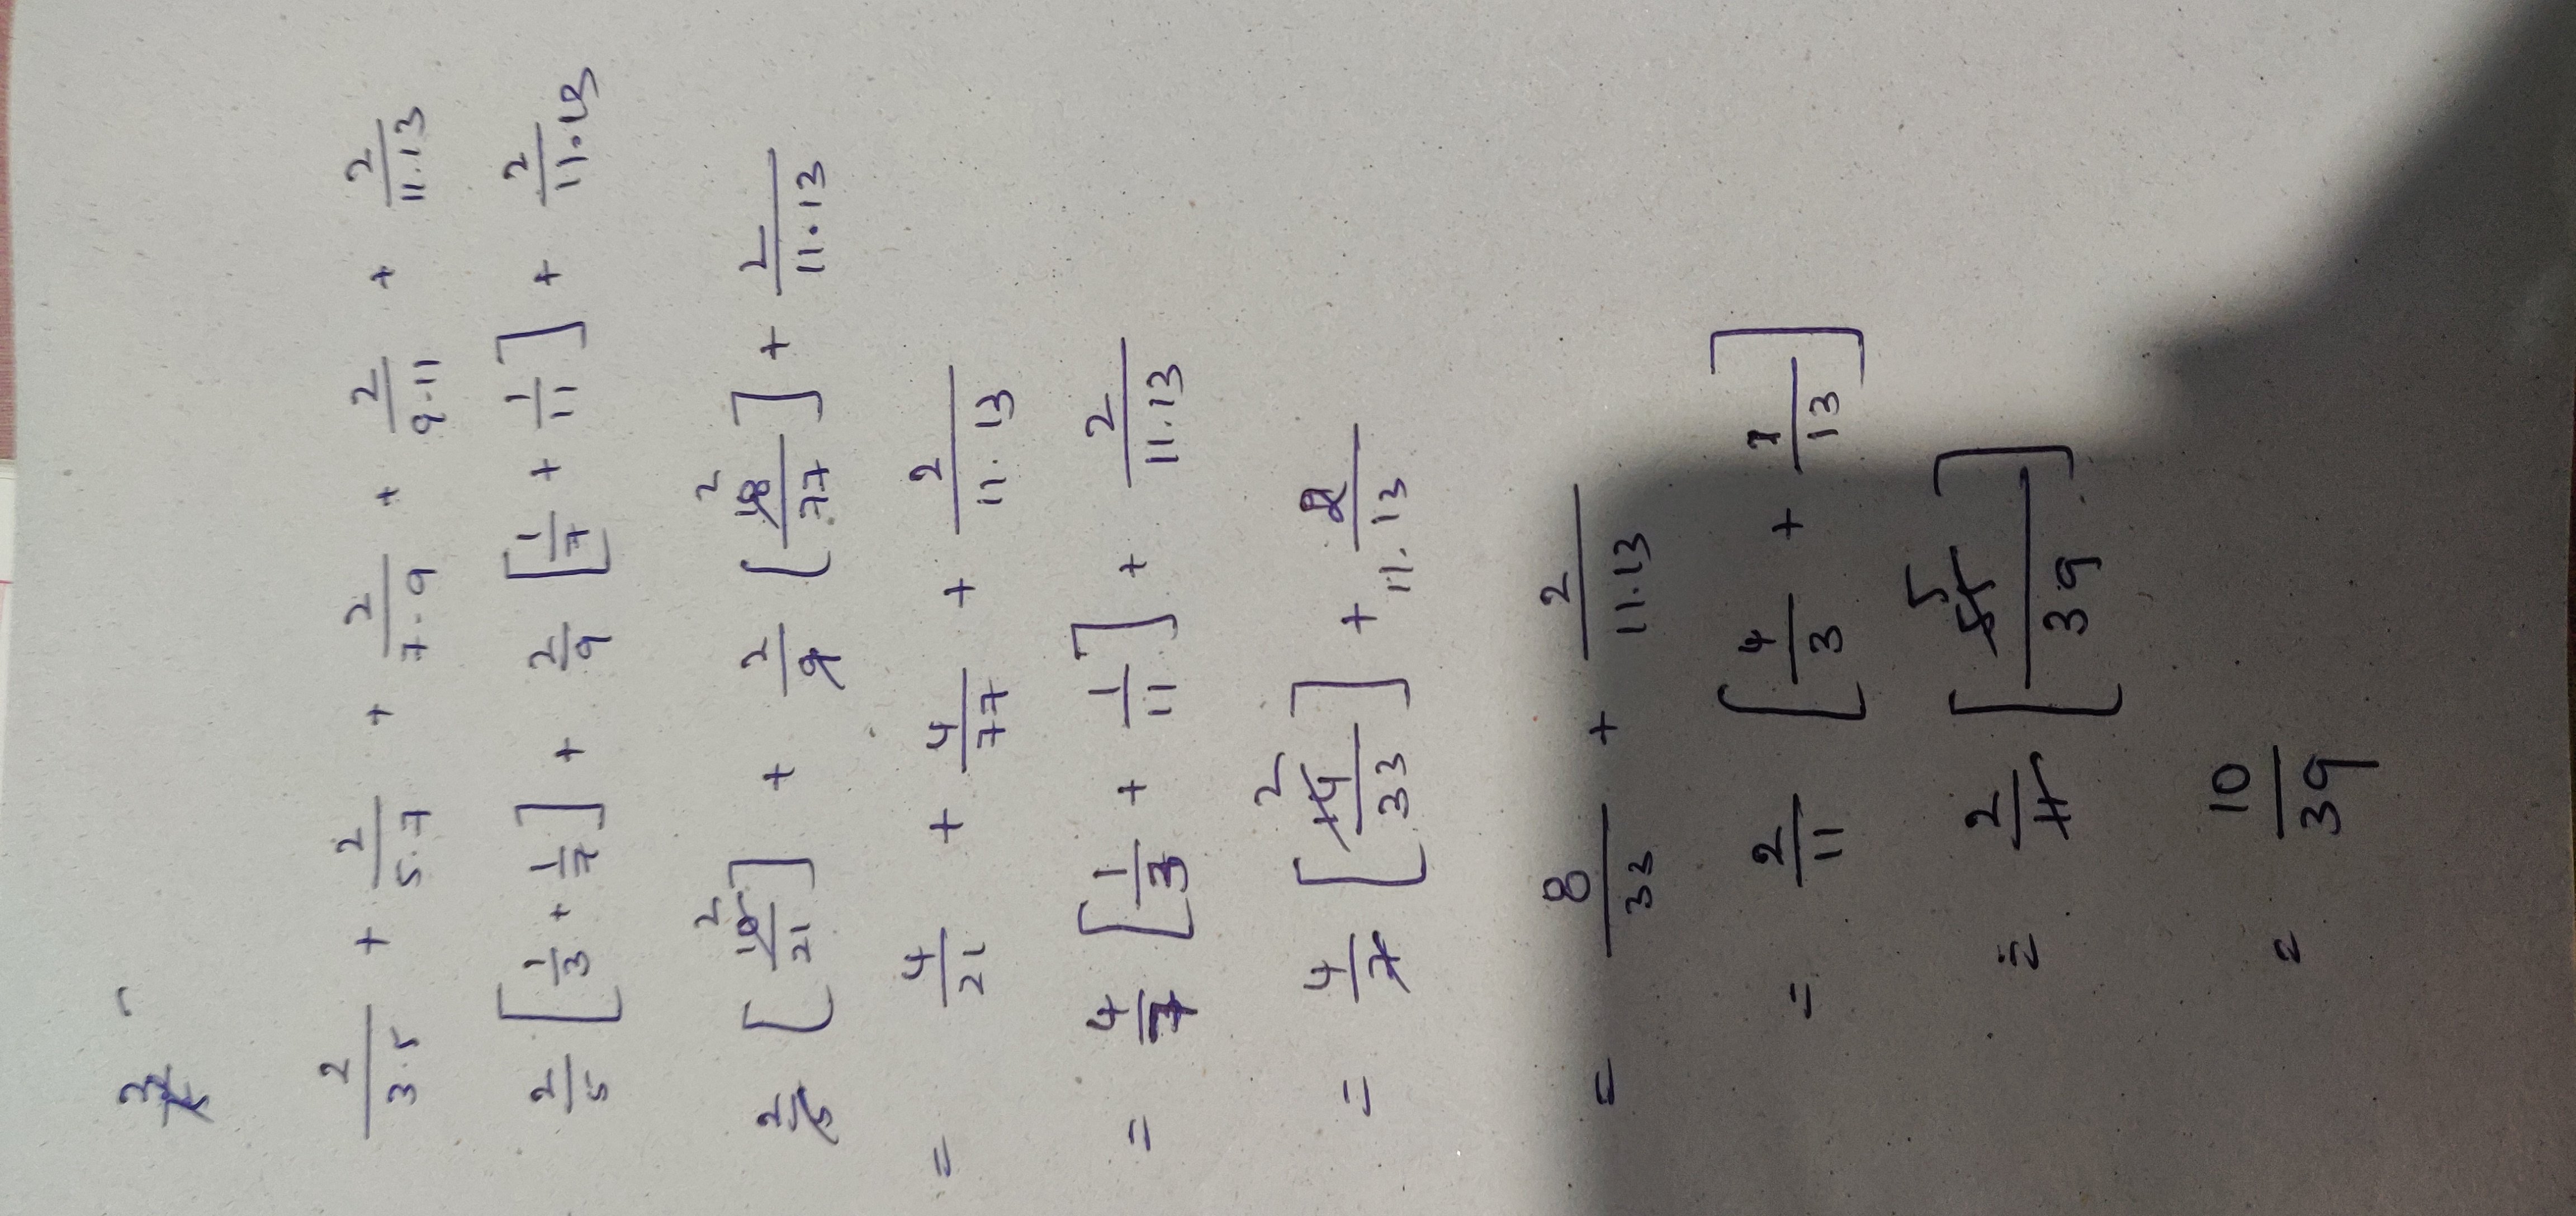 2/3·5 + 2/5·7 + 2/7·9 + 2/9·11 + 2/11·13
2/5 [1/3 + 1/7] + 2/9 [1/7 + 1/11] + 2/11·13
2/5 [10/21 2] + 2/9 [18/77 2] + 2/11·13
= 4/21 + 4/77 + 2/11·13
= 4/7 [1/3 + 1/11] + 2/11·13
= 4/7 [14/33 2] + 2/11·13
= 8/33 + 2/11·13
= 2/11 [4/3 + 1/13]
= 2/11 [55/39 5]
= 10/39